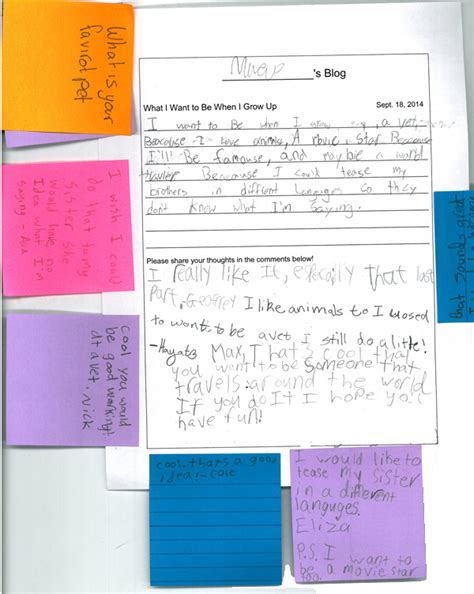 What is your
favirot pet
's Blog
What I Want to Be When I Grow Up Sept. 18, 2014
I want to Be when I grow up, a vet,
Beacouse I love animise, A movie, star Beacouse
I'll Be famouse, and maybie a world
traveler Beacouse I could tease my
brothers in diffrent languges so they
don't know what I'm saying.
Please share your thoughts in the comments below!
I really like It, especially that last
part. Geoffrey I like animals to I ucosed
to wont to be a vet, I still do a litte!
-Hayate Max, That's cool that
you want to be someone that
travels around the world
If you do It I hope you
have fun!
I wish I could
do that to my
sister she
would have no
Idea what I'm
saying - Ava
cool you would
be good working!
at a vet. Nick
that sounds great
cool, thats a good
idea! - cole
I would like to
tease my sister
in a different
languges.
Eliza
P.S. I want to
be a movie star
too.